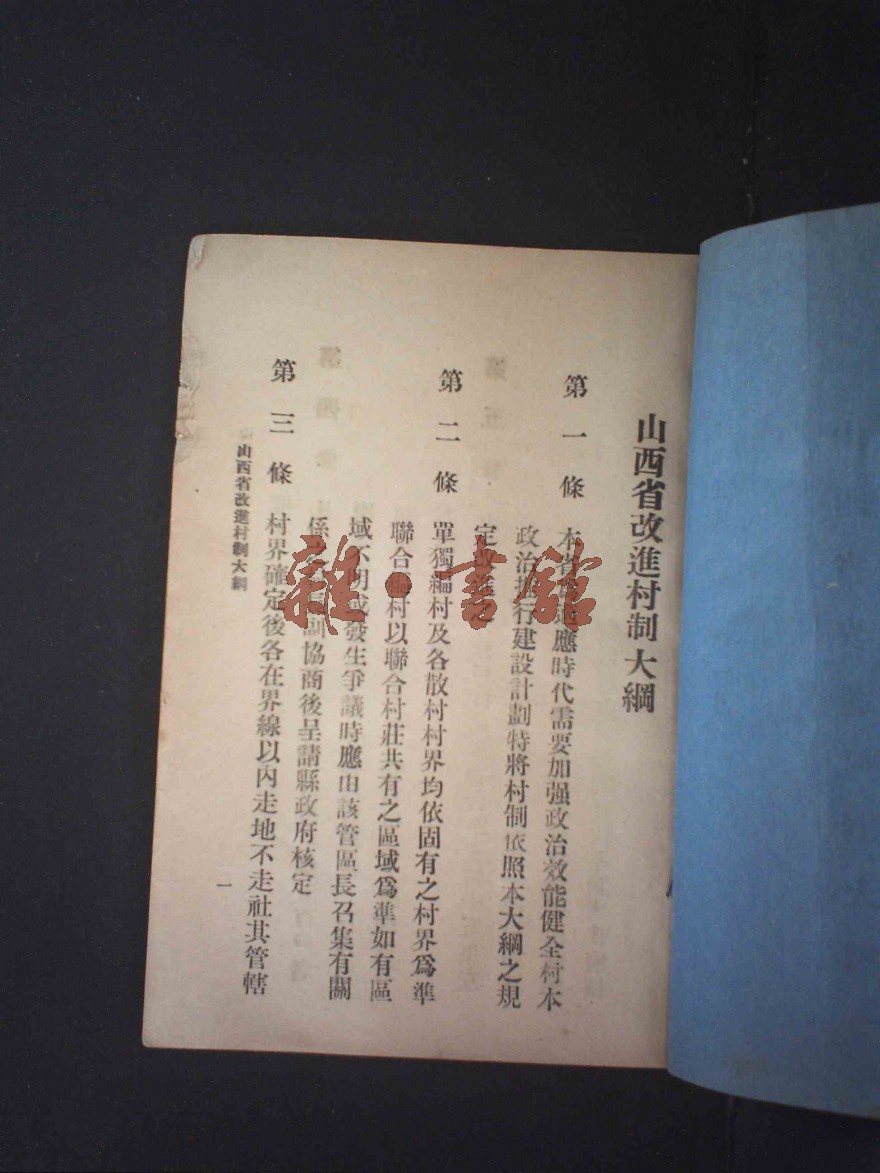 山西省改進村制大綱
第一條 本省為適應時代需要加强政治效能健全村本
政治推行建設計劃特將村制依照本大綱之規
定改進之
第二條 單獨編村及各散村村界均依固有之村界爲準
聯合編村以聯合村莊共有之區域爲準如有區
域不明或發生爭議時應由該管區長召集有關
係村長副協商後呈請縣政府核定
第三條 村界確定後各在界線以內走地不走社其管轄
山西省改進村制大綱
一
雜·書館